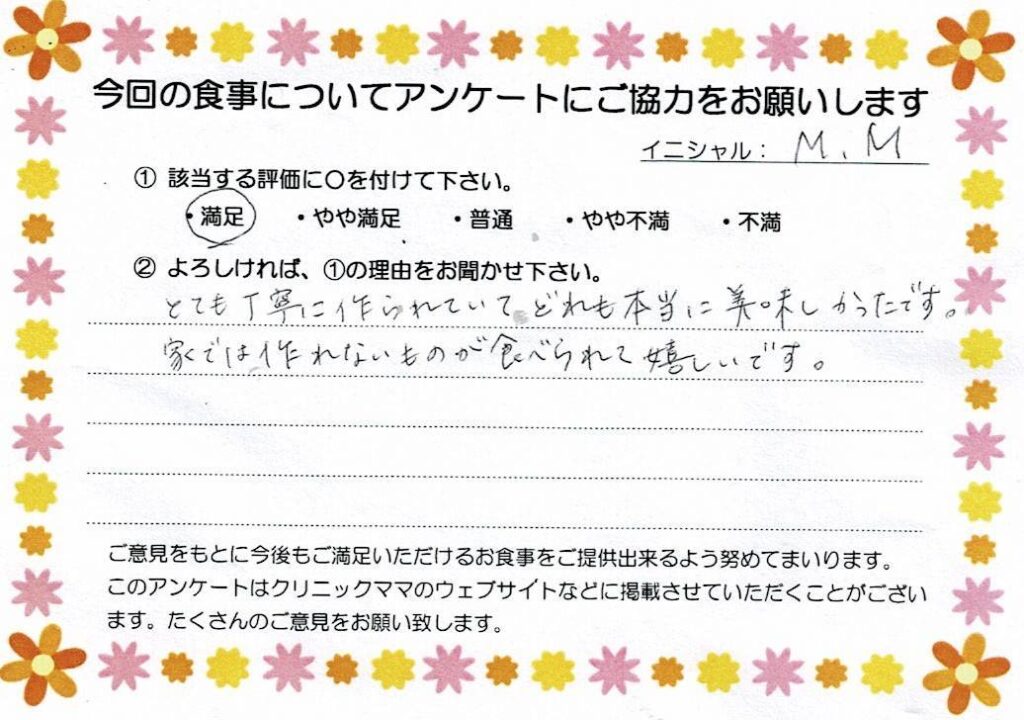 今回の食事についてアンケートにご協力をお願いします
イニシャル： M、M
① 該当する評価に〇を付けて下さい。
・満足 ・やや満足 ・普通 ・やや不満 ・不満
② よろしければ、①の理由をお聞かせ下さい。
とても丁寧に作られていて、どれも本当に美味しかったです。
家では作れないものが食べられて嬉しいです。
ご意見をもとに今後もご満足いただけるお食事をご提供出来るよう努めてまいります。
このアンケートはクリニックママのウェブサイトなどに掲載させていただくことがござい
ます。たくさんのご意見をお願い致します。